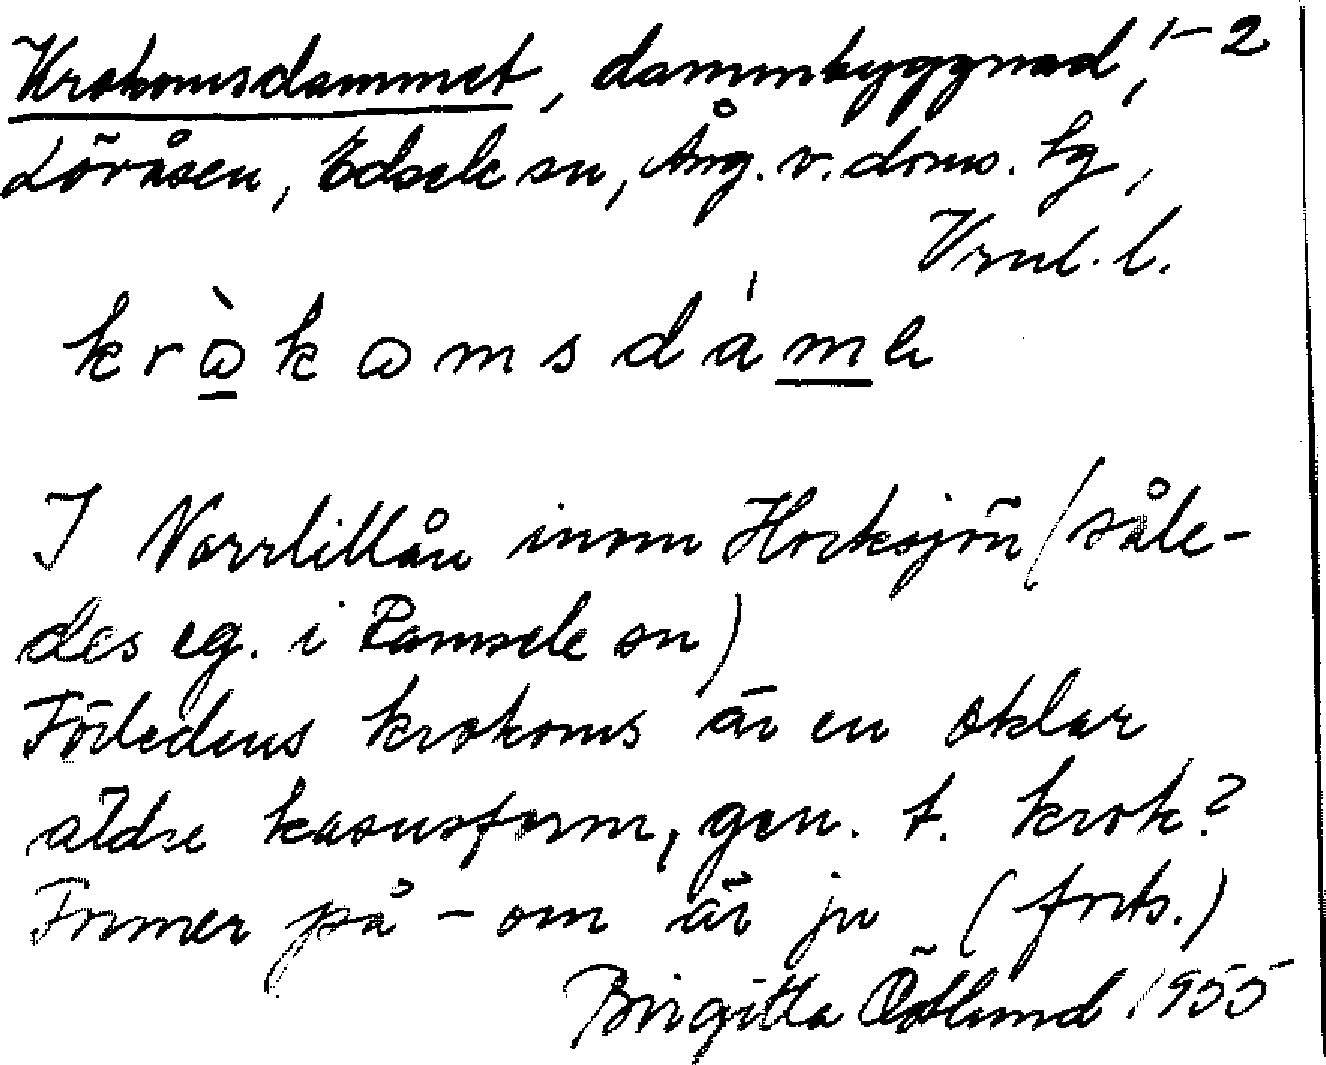 Krokomsdammet, dammbyggnad, 1-2
Lövåsen, Edsele sn, Ång. v. doms. lg,
Vrnl. l.
kròkomsdáme
I Norrlillån inom Hocksjön (såle-
des eg. i Ramsele sn)
Förledens krokoms är en oklar
äldre kasusform, gen. t. krok?
Former på -om är ju (forts.)
Birgitta Östlund 1955